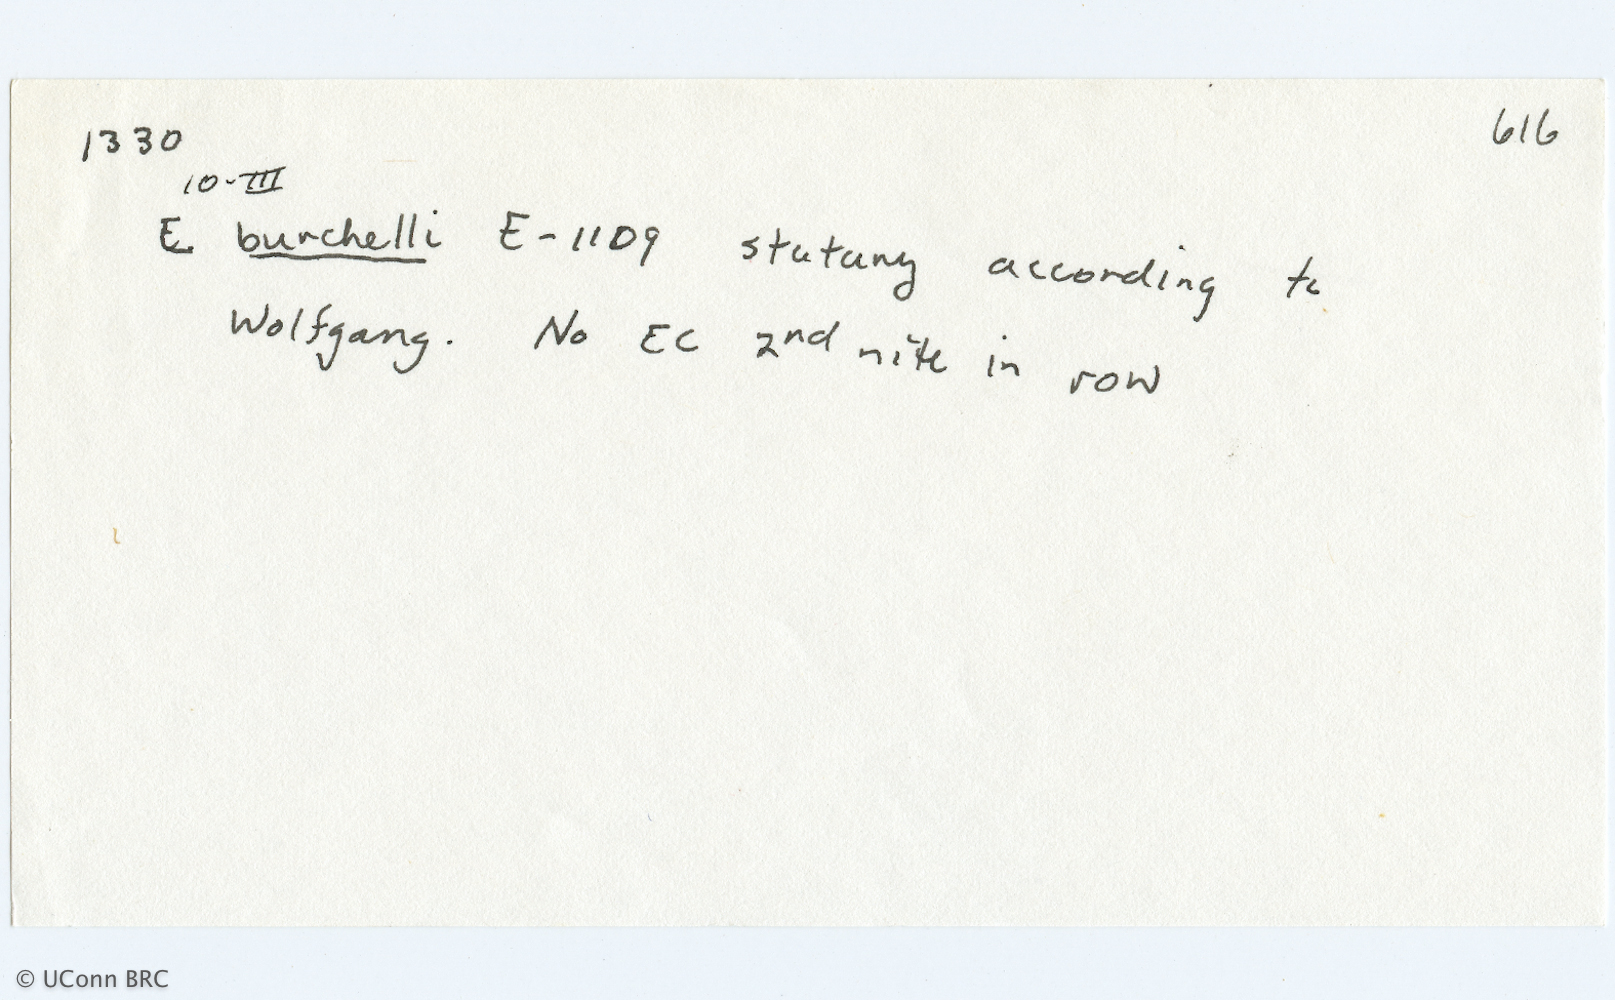 1330
616
10-III
E burchelli E-1109 statary according to
Wolfgang. No EC 2nd nite in row
© UConn BRC